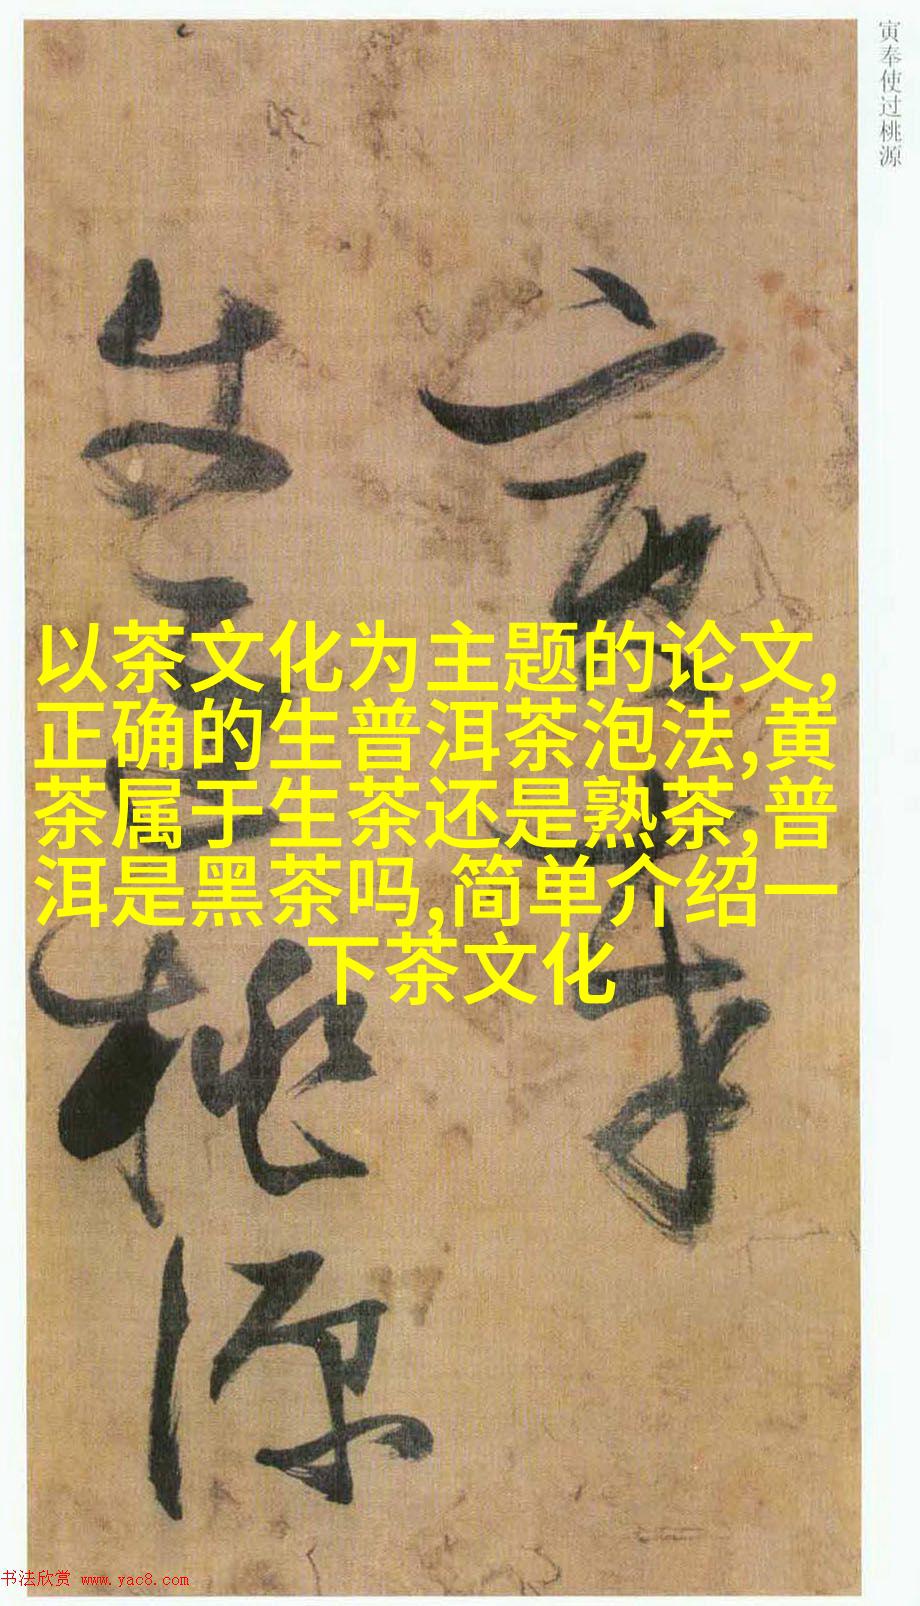 寅奉使过桃源
寅奉
使过桃源
以茶文化为主题的论文,
正确的生普洱茶泡法,黄
茶属于生茶还是熟茶,普
洱是黑茶吗,简单介绍一
下茶文化
书法欣赏 www.yac8.com